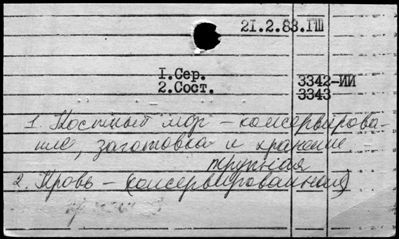 21.2.83.ГШ
1.Сер.
2.Сост.
3342-ИИ
3343
1. Костный мозг – консервирова-
ние, заготовка и хранение
трупная
2. Кровь – консервированная